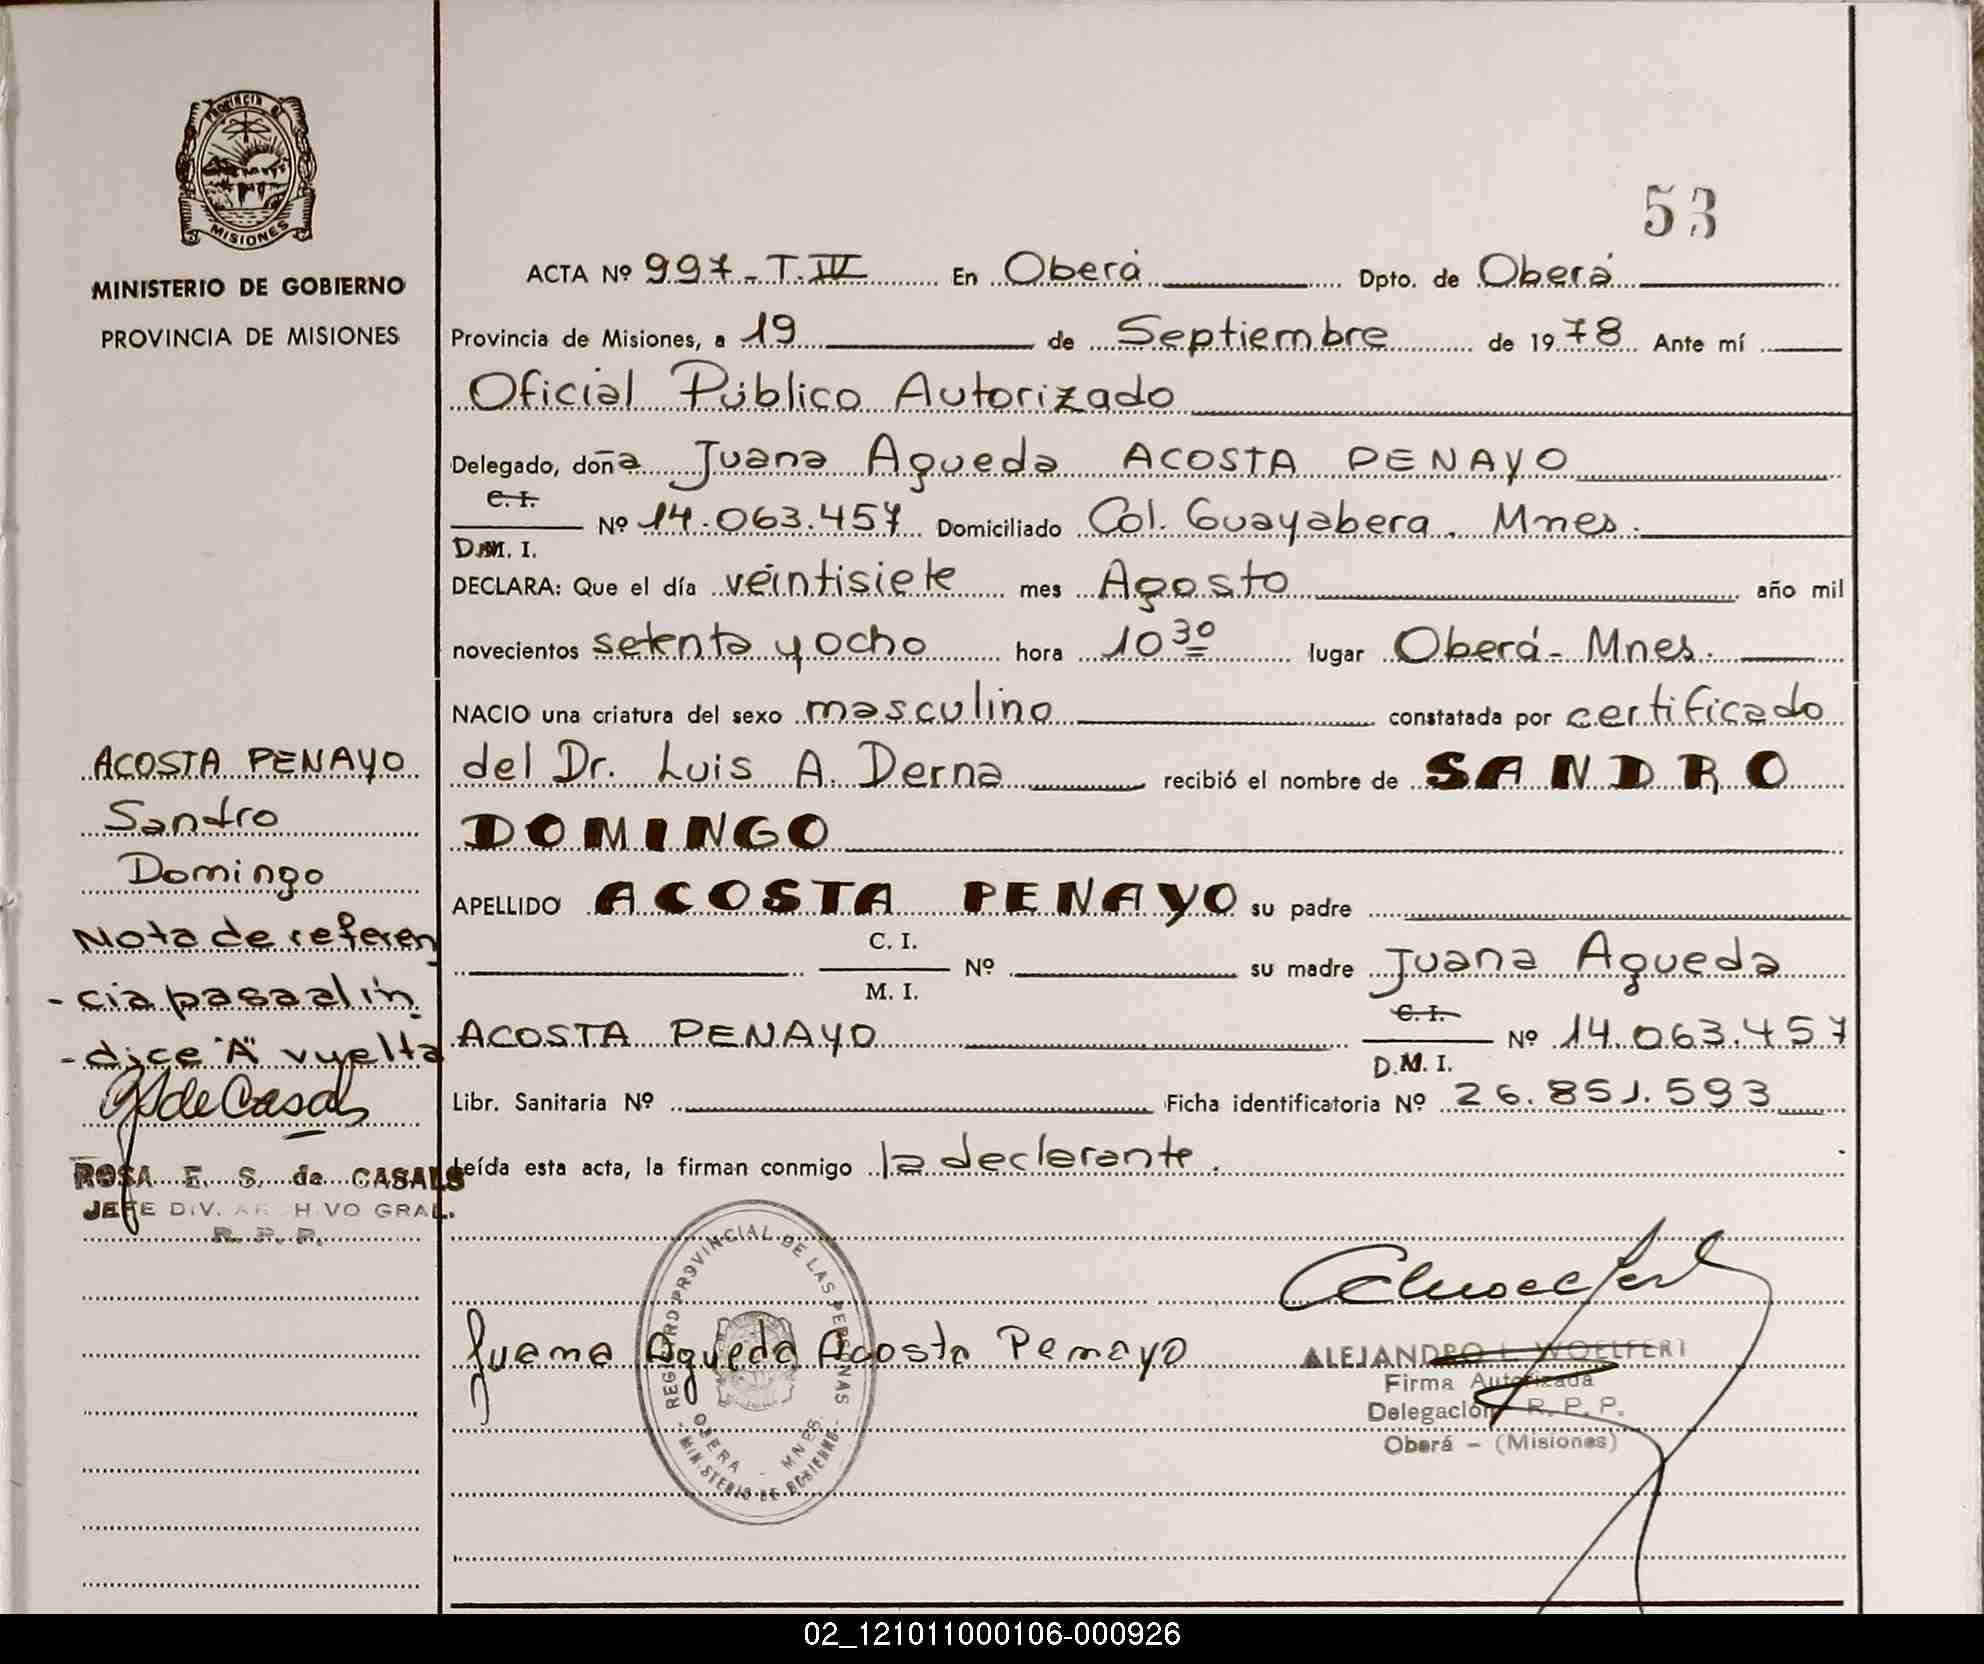 PROVINCIA DE
MISIONES
MINISTERIO DE GOBIERNO
PROVINCIA DE MISIONES
53
ACTA Nº 997-T.IV En Oberá Dpto. de Oberá
Provincia de Misiones, a 19 de Septiembre de 1978 Ante mí
Oficial Público Autorizado
Delegado, doña Juana Agueda ACOSTA PENAYO
C. I.
Nº 14.063.457 Domiciliado Col. Guayabera. Mnes.
D.M. I.
DECLARA: Que el día veintisiete mes Agosto año mil
novecientos setenta y ocho hora 10 30 lugar Oberá- Mnes.
NACIO una criatura del sexo masculino constatada por certificado
del Dr. Luis A. Derna recibió el nombre de SANDRO
DOMINGO
APELLIDO ACOSTA PENAYO su padre
C. I.
Nº su madre Juana Agueda
M. I.
C. I.
ACOSTA PENAYO Nº 14.063.457
D.M. I.
Libr. Sanitaria Nº Ficha identificatoria Nº 26.851.593
Leída esta acta, la firman conmigo la declarante.
ACOSTA PENAYO
Sandro
Domingo
Nota de referen
-cia pasa al ín
-dice "A" vuelta
de Casals
ROSA E. S. de CASALS
JEFE DIV. ARCHIVO GRAL.
R. P. P.
REGISTRO PROVINCIAL DE LAS PERSONAS
OBERA - MNES.
- MINISTERIO DE GOBIERNO -
Juana Agueda Acosta Penayo
ALEJANDRO L. WOELFERT
Firma Autorizada
Delegación R. P. P.
Oberá - (Misiones)
02_121011000106-000926